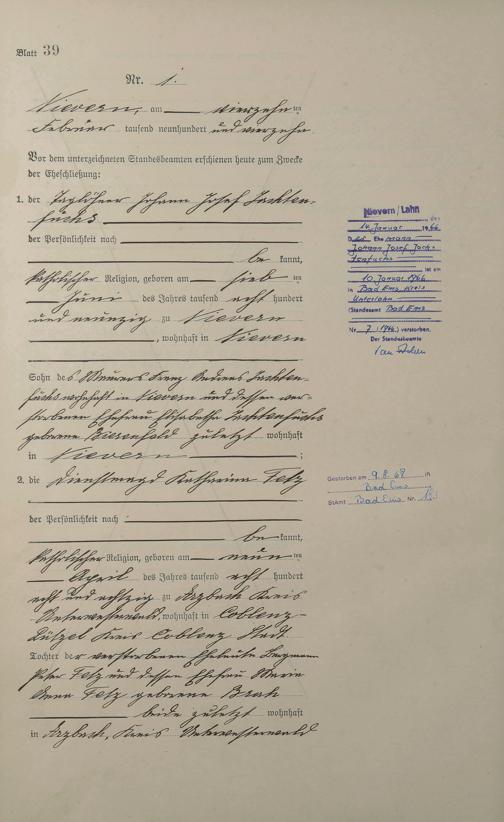 Blatt 39
Nr. 1.
Nievern, am vierzehnten
Februar tausend neunhundert und vierzehn
Vor dem unterzeichneten Standesbeamten erschienen heute zum Zwecke
der Eheschließung:
1. der Taglöhner Johann Josef Jachten-
fuchs
der Persönlichkeit nach
be kannt,
katholischer Religion, geboren am sieb ten
Juni des Jahres tausend acht hundert
und neunzig zu Nievern
, wohnhaft in Nievern
Sohn des Maurers Franz Andreas Jachten-
fuchs wohnhaft in Nievern und dessen ver-
storbenen Ehefrau Elisabetha Jachtenfuchs
geborene zuletzt wohnhaft
in Nievern ;
2. die Dienstmagd Katharina Fetz
der Persönlichkeit nach
be kannt,
katholischer Religion, geboren am neun ten
April des Jahres tausend acht hundert
acht und achtzig zu Arzbach Kreis
Unterwesterwald, wohnhaft in Coblenz-
Lützel Kreis Coblenz Stadt
Tochter der verstorbenen Eheleute Bergmann
Peter Fetz und dessen Ehefrau Maria
Anna Fetz geborene
beide zuletzt wohnhaft
in Arzbach, Kreis Unterwesterwald
Nievern/Lahn
, den
14. Januar 1966
Der Ehemann
Johann Josef Jach-
tenfuchs
ist am
10. Januar 1966
in Bad Ems Kreis
Unterlahn
(Standesamt Bad Ems
Nr. 7/1966) verstorben.
Der Standesbeamte
Gestorben am 9.8.68 in
Bad Ems
StAmt Bad Ems Nr.